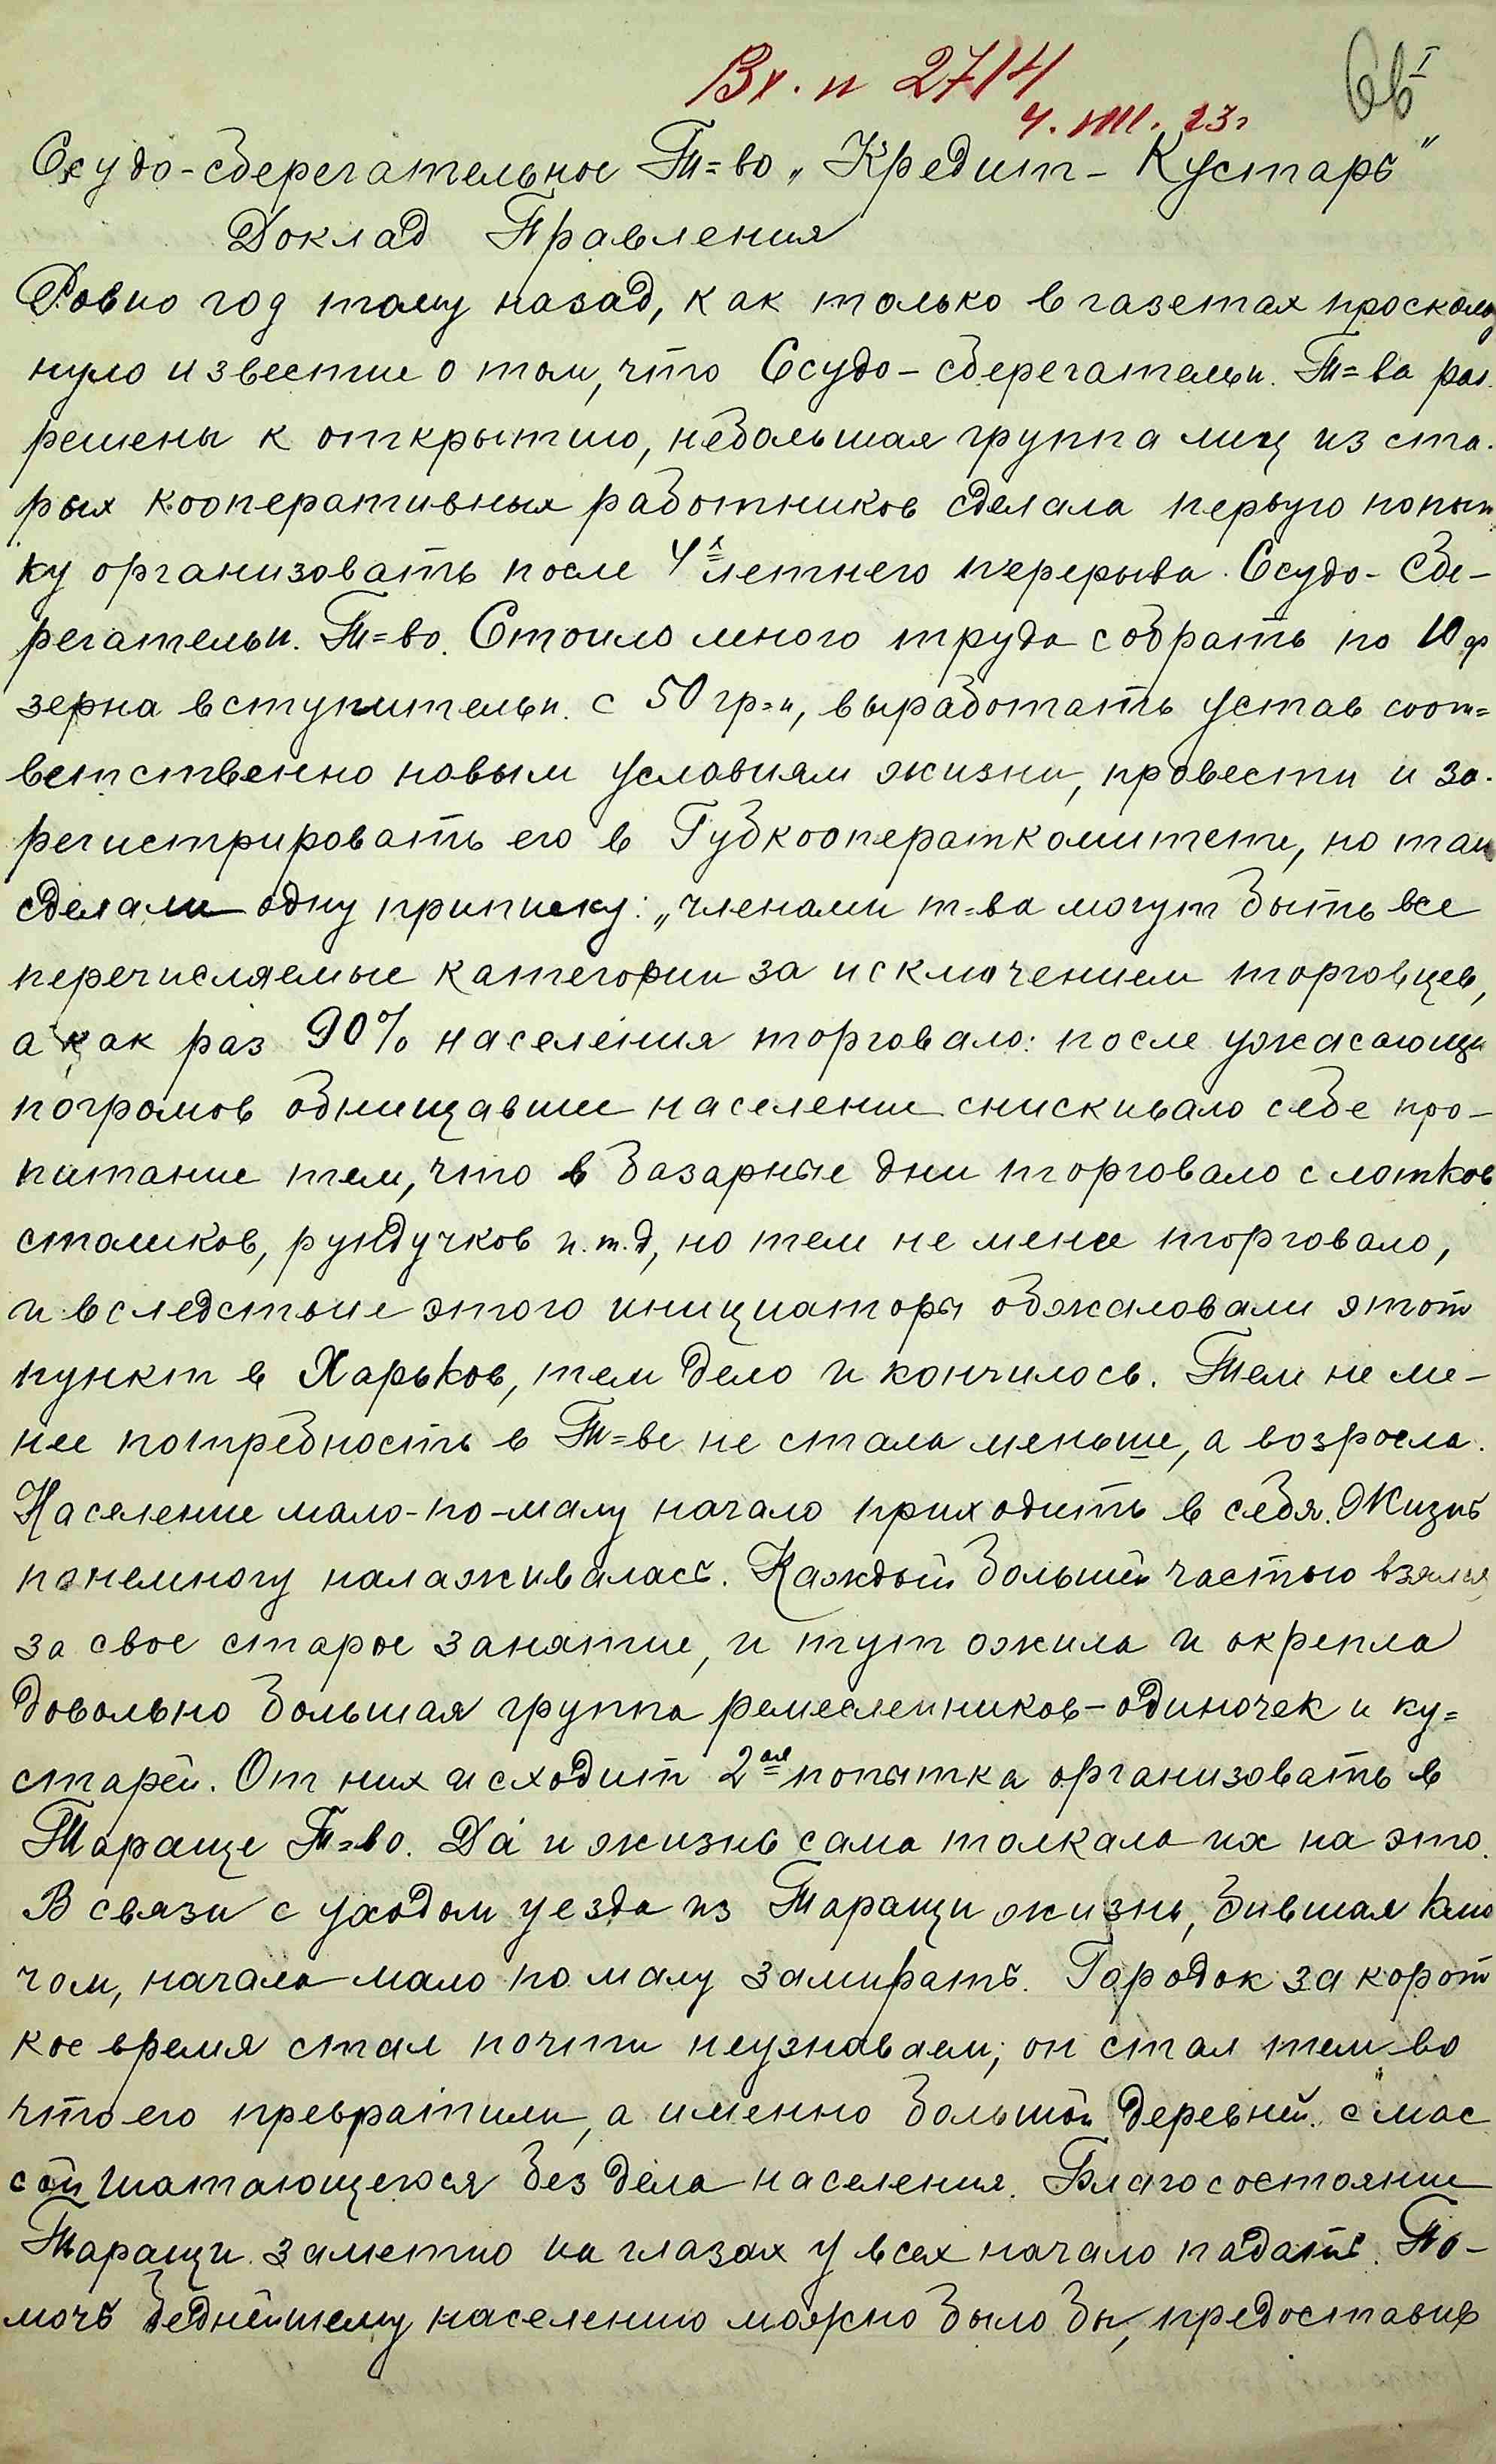 Вх. n 2714
4. VIII. 23г
Ссудо-сберегательное Т=во „Кредит-Кустарь"
Доклад Правления
Ровно год тому назад, как только в газетах просколь
нуло известие о том, что Ссудо-сберегательн. Т=ва раз
решены к открытию, небольшая группа лиц из ста-
рых кооперативных работников сделала первую попыт
ку организовать после 4х летнего перерыва Ссудо-Сбе-
регательн. Т=во. Стоило много труда собрать по 10 ф
зерна вступительн. с 50 гр-н, выработать устав соот=
ветственно новым условиям жизни, провести и за-
регистрировать его в Губкооператкомитете, но там
сделали одну приписку: „членами т=ва могут быть все
перечисляемые категории за исключением торговцев,
а как раз 90% населения торговало: после ужасающи
погромов обнищавшее население снискивало себе про-
питание тем, что в базарные дни торговало с лотков
столиков, рундучков и.т.д, но тем не менее торговало,
и вследствие этого инициаторы обжаловали этот
пункт в Харьков, тем дело и кончилось. Тем не ме-
нее потребность в Т=ве не стала меньше, а возросла.
Население мало-по-малу начало приходить в себя. Жизнь
понемногу налаживалась. Каждый большей частью взялся
за свое старое занятие, и тут ожила и окрепла
довольно большая группа ремесленников-одиночек и ку=
старей. От них исходит 2ая попытка организовать в
Тараще Т=во. Да и жизнь сама толкала их на это.
В связи с уходом уезда из Таращи жизнь, бившая клю
чом, начала мало по малу замирать. Городок за корот
кое время стал почти неузнаваем; он стал тем во
что его превратили, а именно большой деревней с мас
сой шатающегося без дела населения. Благосостояние
Таращи заметно на глазах у всех начало падать. По-
мочь беднейшему населению можно было бы, предоставив